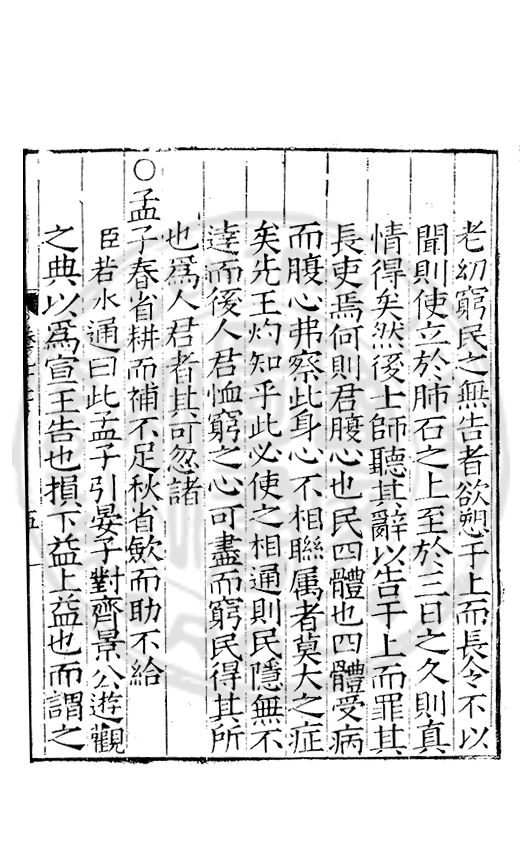 老幼窮民之無告者欲愬于上而長令不以
聞則使立於肺石之上至於三日之久則真
情得矣然後士師聽其辭以告于上而罪其
長吏焉何則君腹心也民四體也四體受病
而腹心弗察此身心不相聯属者莫大之症
矣先王灼知乎此必使之相通則民隱無不
達而後人君恤窮之心可盡而窮民得其所
也為人君者其可忽諸
○孟子春省耕而補不足秋省斂而助不給
臣若水通曰此孟子引晏子對齊景公遊觀
之典以為宣王告也損下益上益也而謂之
五